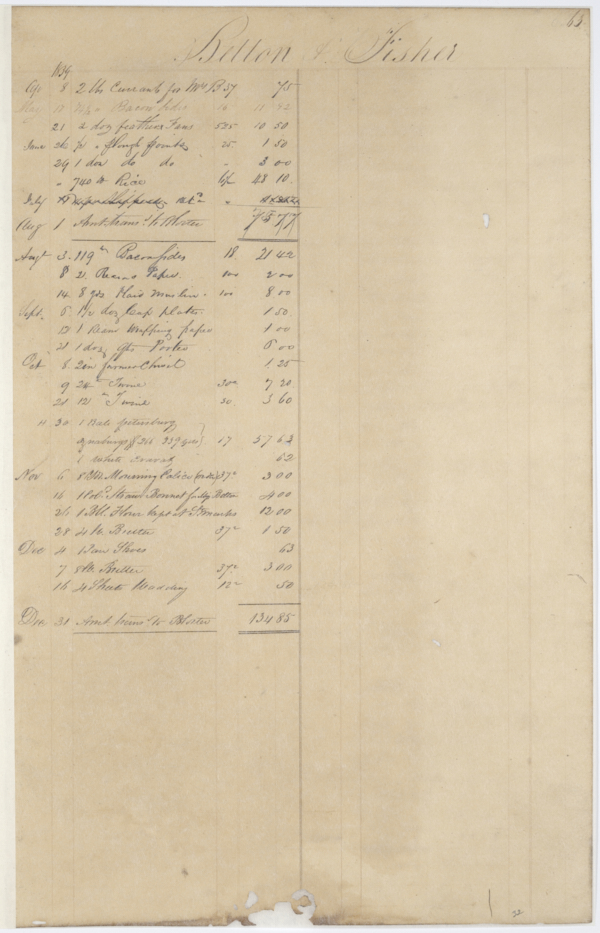 65
Betton & Fisher
1839
Ap 8 2 lbs Currants for Mrs B 37 75
May 17 Bacon Sides 16 11 92
21 2 doz feather Fans 525 10 50
June 26 plough points 25 1 50
29 1 doz do do " 3 00
" 740 lb Rice 6½ 48 10
July
Aug 1 Amt trans'd to Blotter 75 77
Augt 3 119 lb Bacon Sides 18 21 42
8 2 Reams Paper 100 2 00
14 8 yds Plaid Muslin 100 8 00
Sept 5 1½ doz Cup plates 1 50
17 1 Ream Wrapping paper 1 00
21 1 doz qts Porter 6 00
Oct 8 2 in firmer Chisel 1 25
9 24 lb Twine 30c 7 20
21 12 lb Twine 30 3 60
" 30 1 Bale petersburg
Osnaburgs 17 57 63
1 White Cravat 62
Nov 6 8 yds Mourning Calico 37c 3 00
16 1 Straw Bonnet 4 00
26 1 Bbl Flour Capt 12 00
28 4 lb Butter 37c 1 50
Dec 4 1 pair Shoes 63
7 8 lb Butter 37c 3 00
16 4 Sheets Wadding 12c 50
Dec 31 Amt trans'd to Blotter 134 85